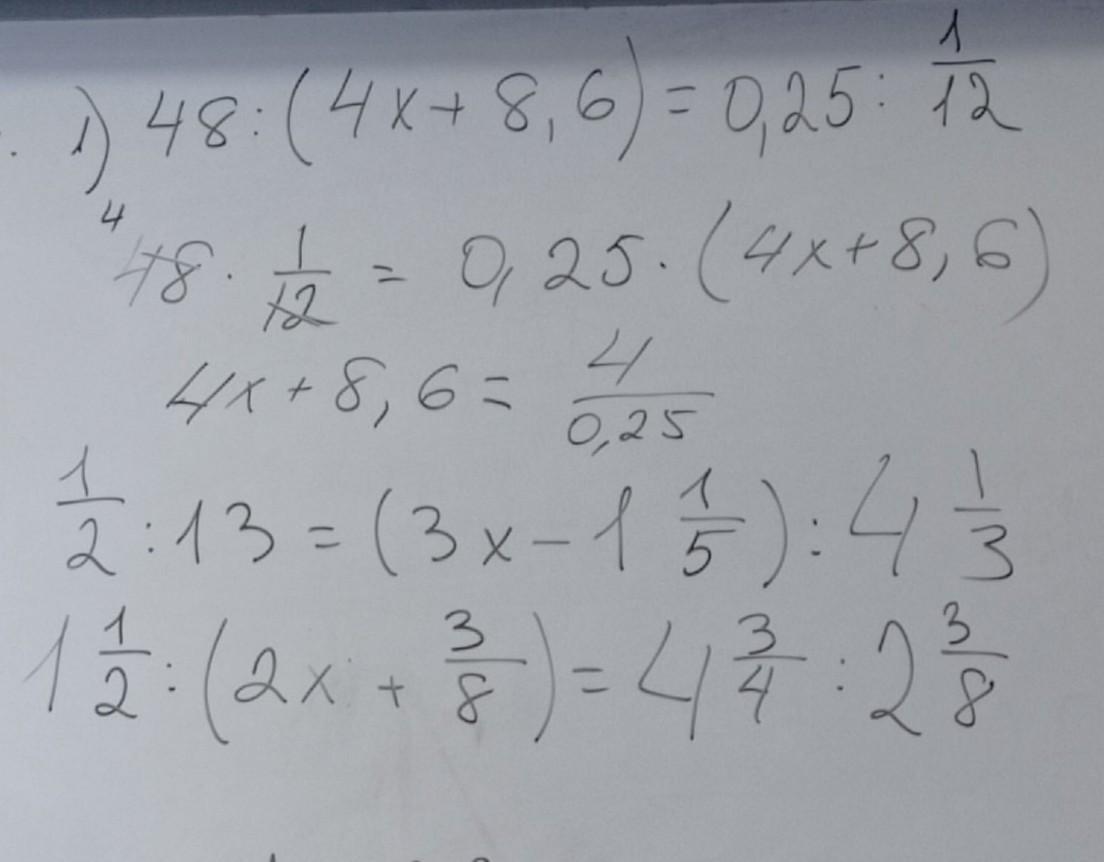 1) 48 : (4x + 8,6) = 0,25 : 1/12
48 · 1/12 = 0,25 · (4x + 8,6)
4x + 8,6 = 4/0,25
1/2 : 13 = (3x - 1 1/5) : 4 1/3
1 1/2 : (2x + 3/8) = 4 3/4 : 2 3/8